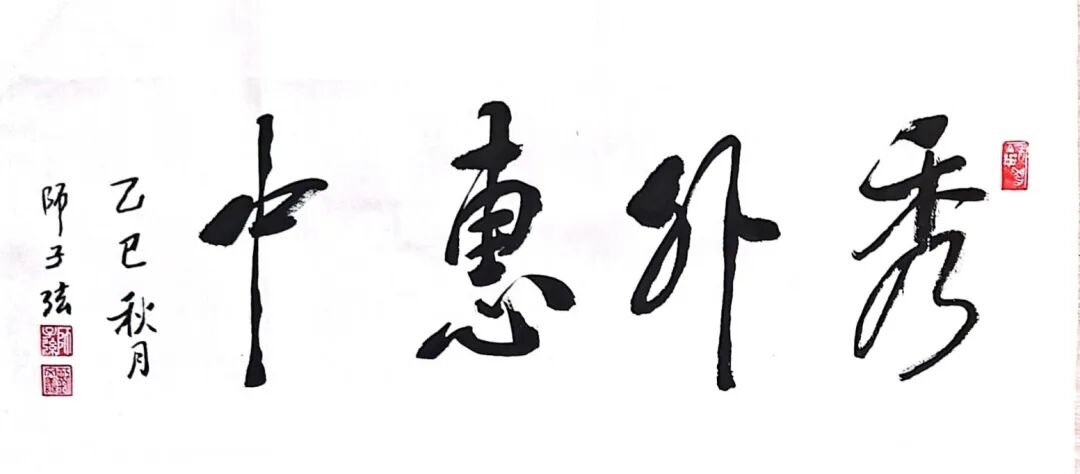 秀外惠中
乙巳秋月
师子弦